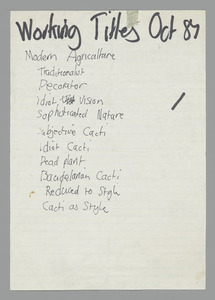 Working Titles Oct 87
Modern Agriculture
Traditionalist
Decorator
Idiot Vision
Sophisticated Nature
Subjective Cacti
Idiot Cacti
Dead plant
Cacti
Reduced to Style
Cacti as Style